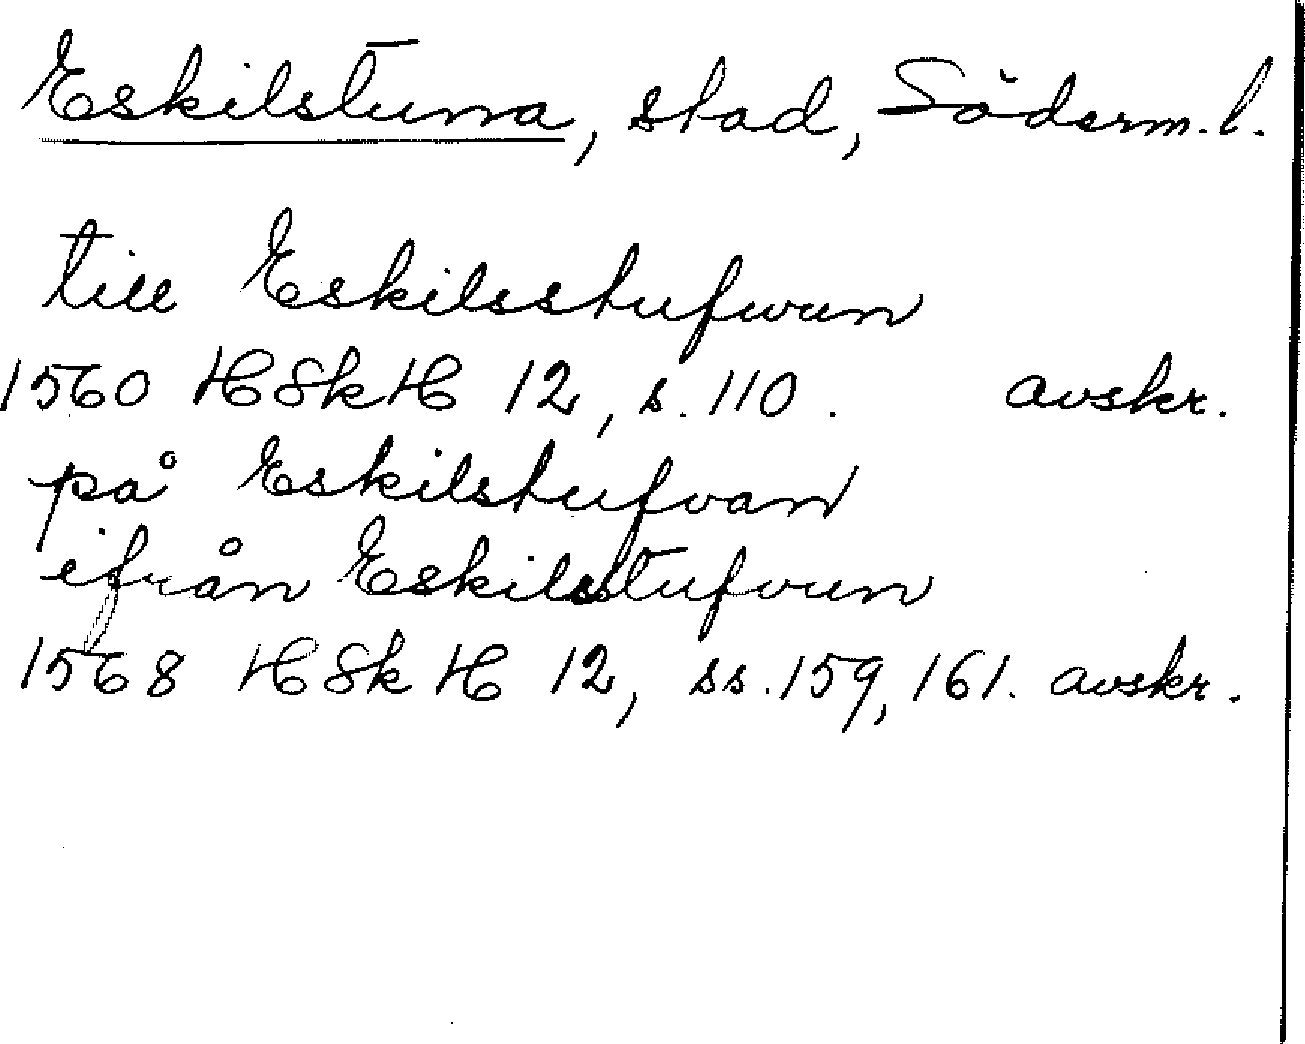 Eskilstuna, stad, Söderm. l.
till Eskilsstufwun
1560 HSkH 12, s. 110. avskr.
på Eskilstufvan
ifrån Eskilstufvun
1568 HSkH 12, ss. 159, 161. avskr.